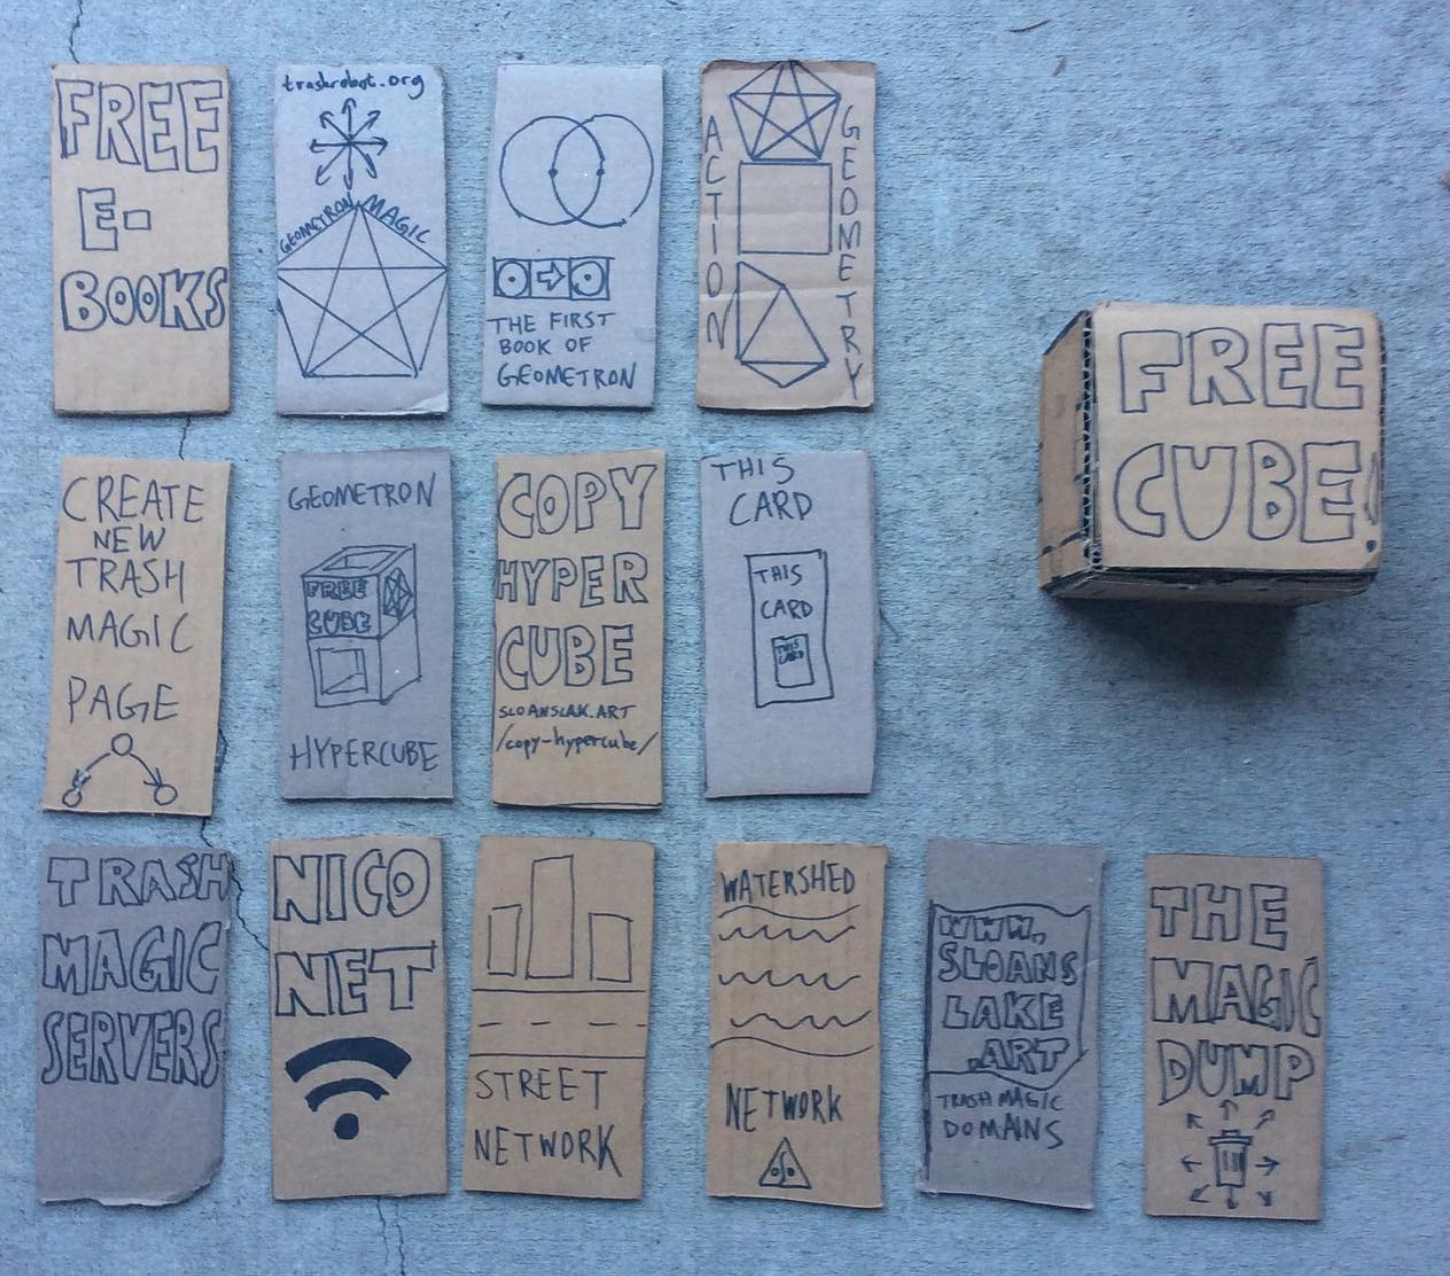 FREE
E-
BOOKS
trashrobot.org
GEOMETRON MAGIC
THE FIRST
BOOK OF
GEOMETRON
ACTION
GEOMETRY
FREE
CUBE!
CREATE
NEW
TRASH
MAGIC
PAGE
GEOMETRON
FREE
CUBE
HYPERCUBE
COPY
HYPER
CUBE
SLOANSLAK.ART
/copy-hypercube/
THIS
CARD
THIS
CARD
THIS
CARD
TRASH
MAGIC
SERVERS
NICO
NET
STREET
NETWORK
WATERSHED
NETWORK
WWW.
SLOANS
LAKE
.ART
TRASH MAGIC
DOMAINS
THE
MAGIC
DUMP